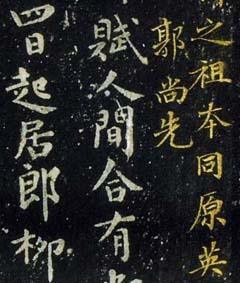 之祖本同原英
郭尚先
賦人間合有
四日起居郎柳